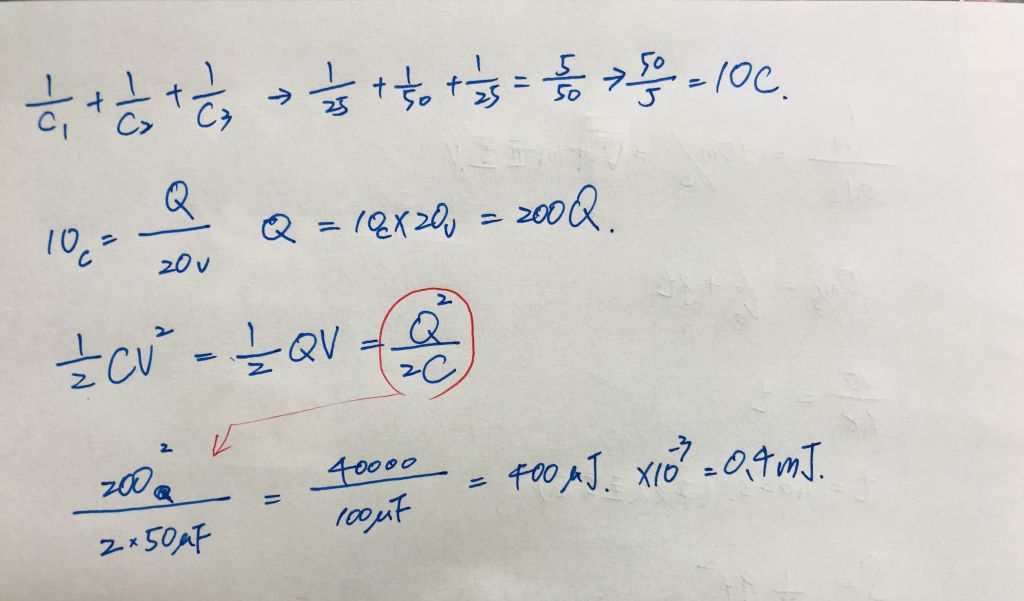 1/C₁ + 1/C₂ + 1/C₃ → 1/25 + 1/50 + 1/25 = 5/50 → 50/5 = 10C.
10c = Q/20v Q = 10c×20v = 200Q.
1/2 CV² = 1/2 QV = Q²/2C
200Q²/2×50μF = 40000/100μF = 400μJ. ×10⁻³ = 0,4mJ.